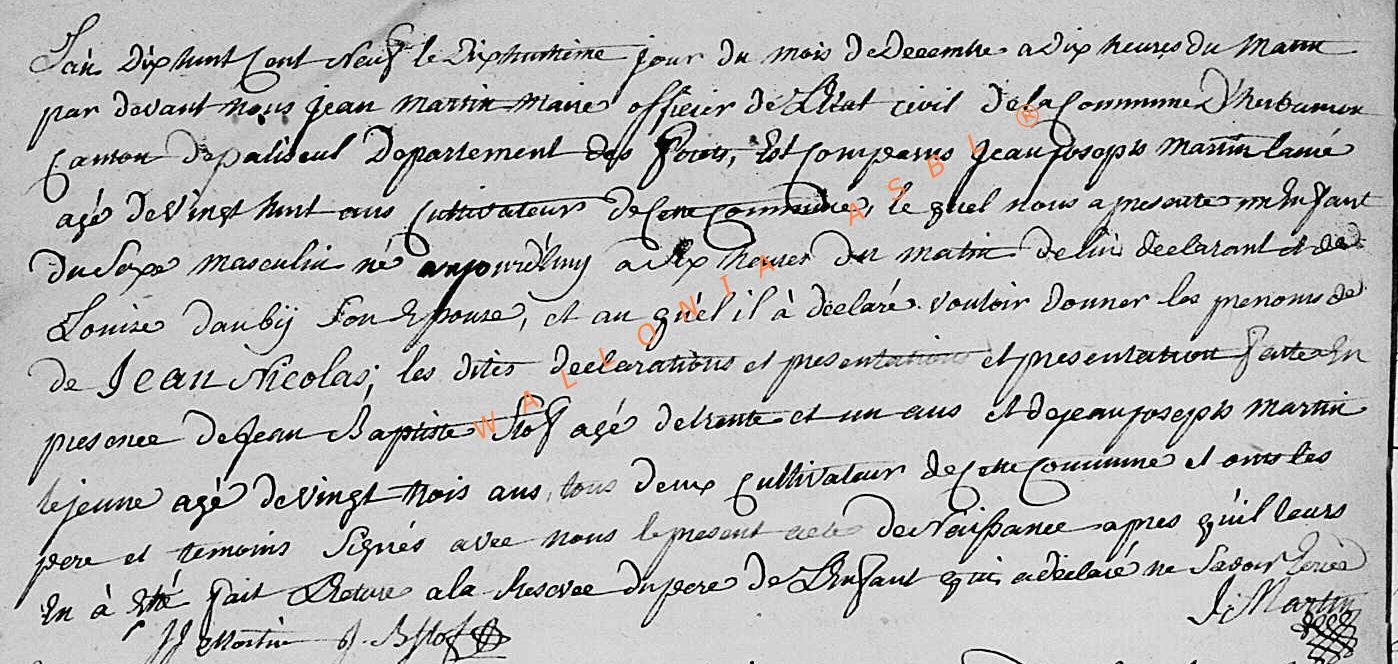 L'an Dix huit Cent Neuf le Dixhuitieme jour du mois de Decembre a Dix heures du Matin
par devant nous jean martin Maire officier de L'Etat civil de la Commune D'herbumon
Canton de paliseul Departement des Forets, Est Comparus jean joseph Martin l'ainé
agé de Vingt huit ans Cultivateur de Cette Commune, le quel nous a presenté un Enfant
Du Sexe masculin né aujourd'huy a dix heures du matin de lui declarant et de
Louise daubij Son Epouse, et au quél il à déclaré vouloir donner les prenoms de
de Jean Nicolas; les dites declarations et presentations et presentation faite En
presence de Jean Baptiste Stof agé de trente et un ans et de jean joseph Martin
le jeune agé de Vingt trois ans, tous deux Cultivateur de Cette Commune et onts les
pere et temoins Signés avec nous le present acte de Naissance apres qu'il leurs
En à été fait Lecture a la Reserve du pere de L'Enfant qui a declaré ne Savoir Ecrire
JJ Martin J. B Stof J. Martin
WALLONIA ASBL ®